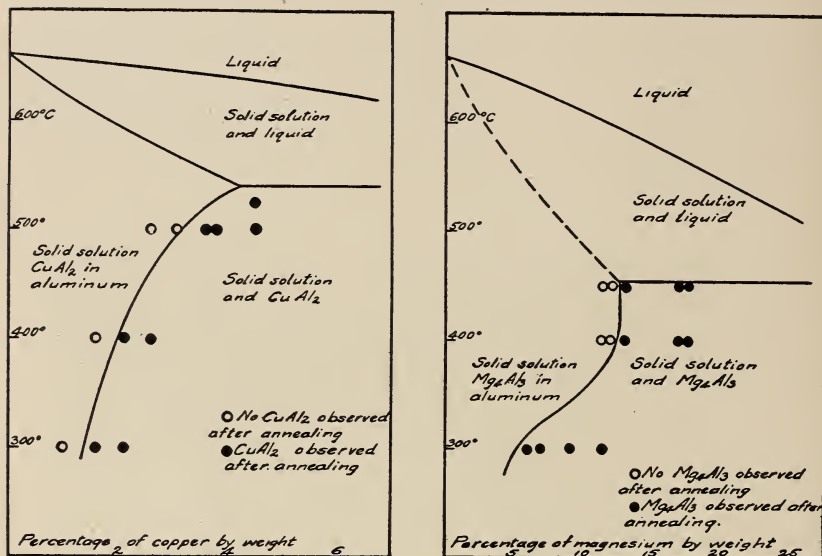 Liquid
600°C
Solid solution
and liquid
500°
Solid solution
CuAl2 in
aluminum
Solid solution
and CuAl2
400°
No CuAl2 observed
after annealing
CuAl2 observed
after annealing
300°
Percentage of copper by weight
2 4 6
Liquid
600°C
Solid solution
and liquid
500°
400°
Solid solution
Mg4Al3 in
aluminum
Solid solution
and Mg4Al3
300°
No Mg4Al3 observed
after annealing
Mg4Al3 observed after
annealing.
Percentage of magnesium by weight
5 10 15 20 25